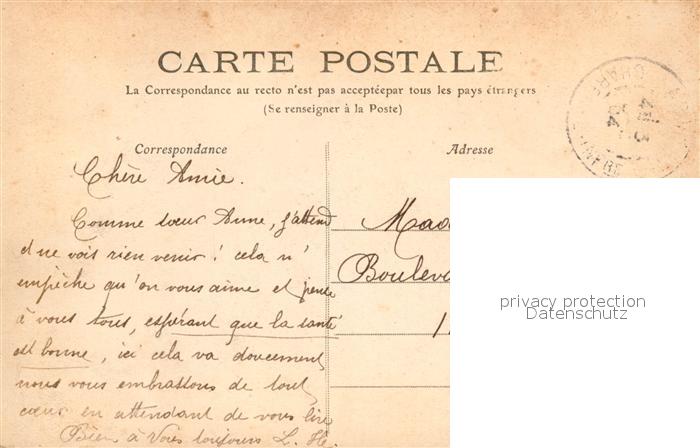 CARTE POSTALE
La Correspondance au recto n'est pas acceptéepar tous les pays étrangers
(Se renseigner à la Poste)
Correspondance
Adresse
Chère Amie.
Comme sœur Anne, j'attend
et ne vois rien venir! cela n'
empêche qu'on vous aime et pense
à vous tous, espérant que la santé
est bonne, ici cela va doucement
nous vous embrassons de tout
cœur en attendant de vous lire
Bien à Vous toujours L. H.
Mad
Boulev
privacy protection
Datenschutz